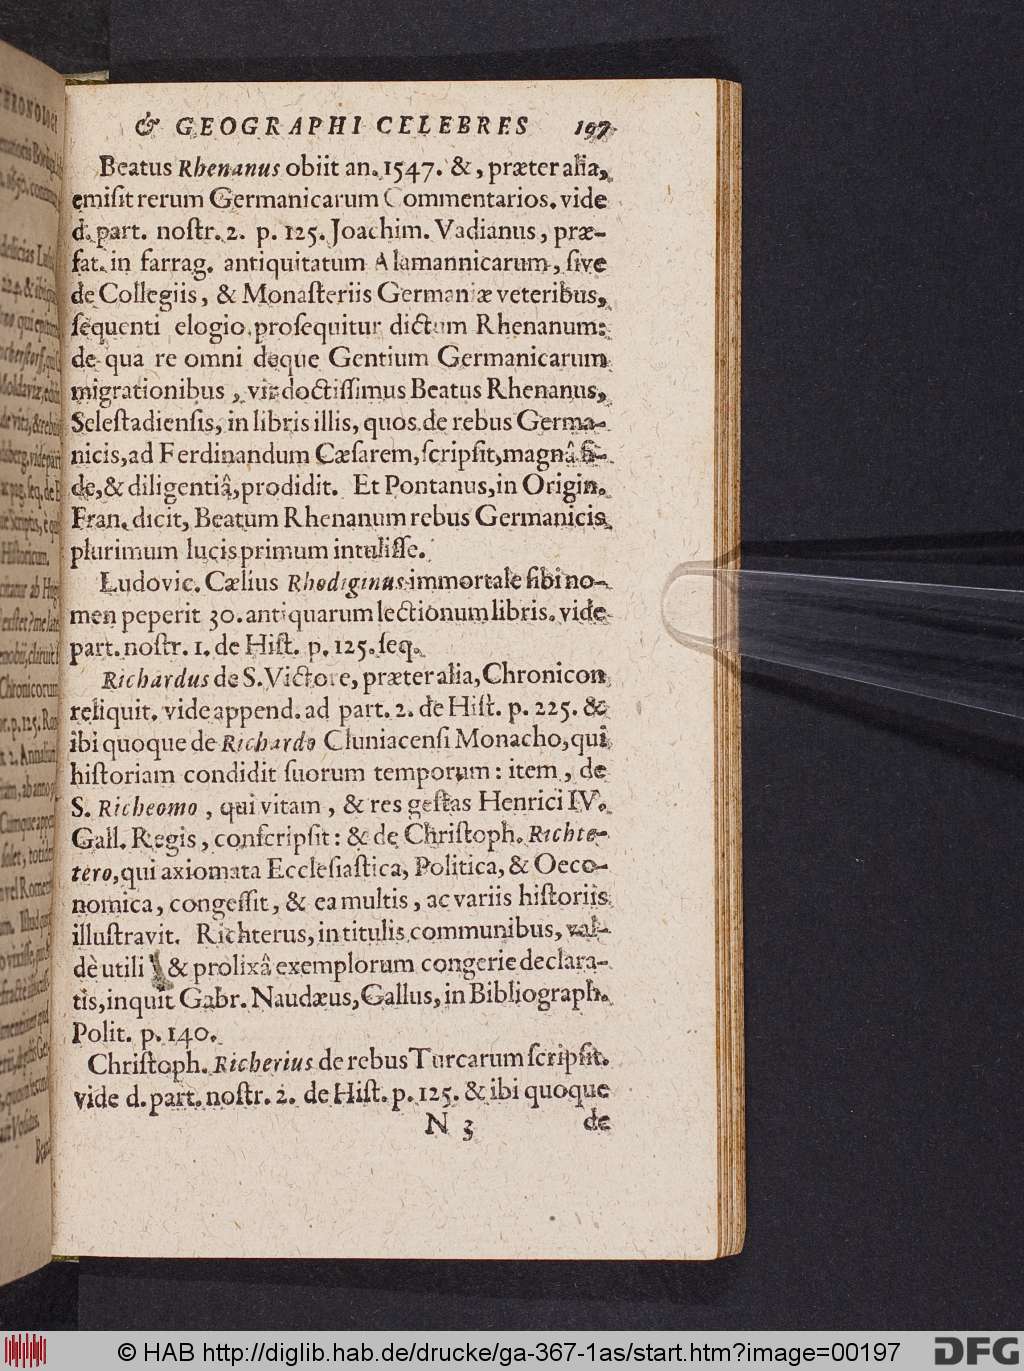 & GEOGRAPHI CELEBRES 197
Beatus Rhenanus obiit an. 1547. &, præter alia,
emiſit rerum Germanicarum Commentarios. vide
d. part. noſtr. 2. p. 125. Joachim. Vadianus, præ-
fat. in farrag. antiquitatum Alamannicarum, ſive
de Collegiis, & Monaſteriis Germaniæ veteribus,
ſequenti elogio proſequitur dictum Rhenanum:
de qua re omni deque Gentium Germanicarum
migrationibus, vir doctiſſimus Beatus Rhenanus,
Seleſtadienſis, in libris illis, quos de rebus Germa-
nicis, ad Ferdinandum Cæſarem, ſcripſit, magnâ fi-
de, & diligentiâ, prodidit. Et Pontanus, in Origin.
Fran. dicit, Beatum Rhenanum rebus Germanicis
plurimum lucis primum intuliſſe.
Ludovic. Cælius Rhodiginus immortale ſibi no-
men peperit 30. antiquarum lectionum libris. vide
part. noſtr. 1. de Hiſt. p. 125. ſeq.
Richardus de S. Victore, præter alia, Chronicon
reliquit. vide append. ad part. 2. de Hiſt. p. 225. &
ibi quoque de Richardo Cluniacenſi Monacho, qui
hiſtoriam condidit ſuorum temporum: item, de
S. Richeomo, qui vitam, & res geſtas Henrici IV.
Gall. Regis, conſcripſit: & de Chriſtoph. Richte-
tero, qui axiomata Eccleſiaſtica, Politica, & Oeco-
nomica, congeſſit, & ea multis, ac variis hiſtoriis
illuſtravit. Richterus, in titulis communibus, val-
dè utili & prolixâ exemplorum congerie declara-
tis, inquit Gabr. Naudæus, Gallus, in Bibliograph.
Polit. p. 140.
Chriſtoph. Richerius de rebus Turcarum ſcripſit.
vide d. part. noſtr. 2. de Hiſt. p. 125. & ibi quoque
N 3 de
© HAB http://diglib.hab.de/drucke/ga-367-1as/start.htm?image=00197
DFG